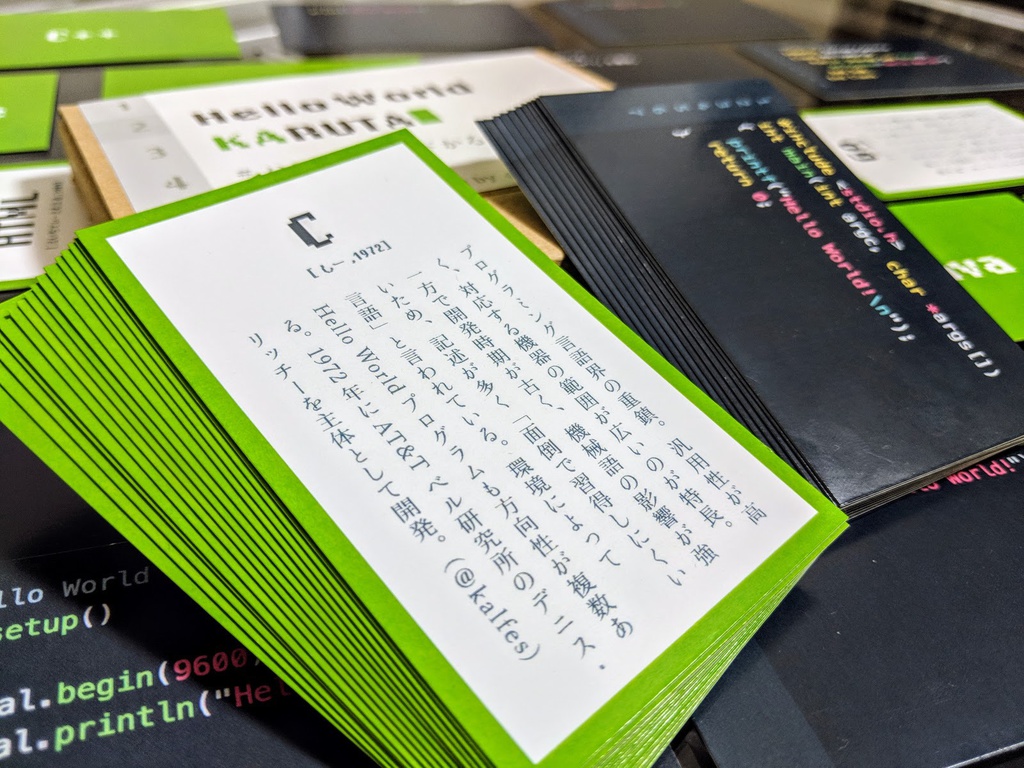 C++
Hello World
KARUTA
1
2
3
4
by
HTML
C
[しー, 1972]
プログラミング言語界の重鎮。汎用性が高
く、対応する機器の範囲が広いのが特長。
一方で開発時期が古く、機械語の影響が強
いため、記述が多く「面倒で習得しにくい
言語」と言われている。環境によって
Hello Worldプログラムも方向性が複数あ
る。1972年にAT&Tベル研究所のデニス・
リッチーを主体として開発。(@kalfes)
#include <stdio.h>
int main(int argc, char *args[])
{
printf("Hello World!\n");
return 0;
}
llo World
setup()
al.begin(9600)
al.println("Hel
va